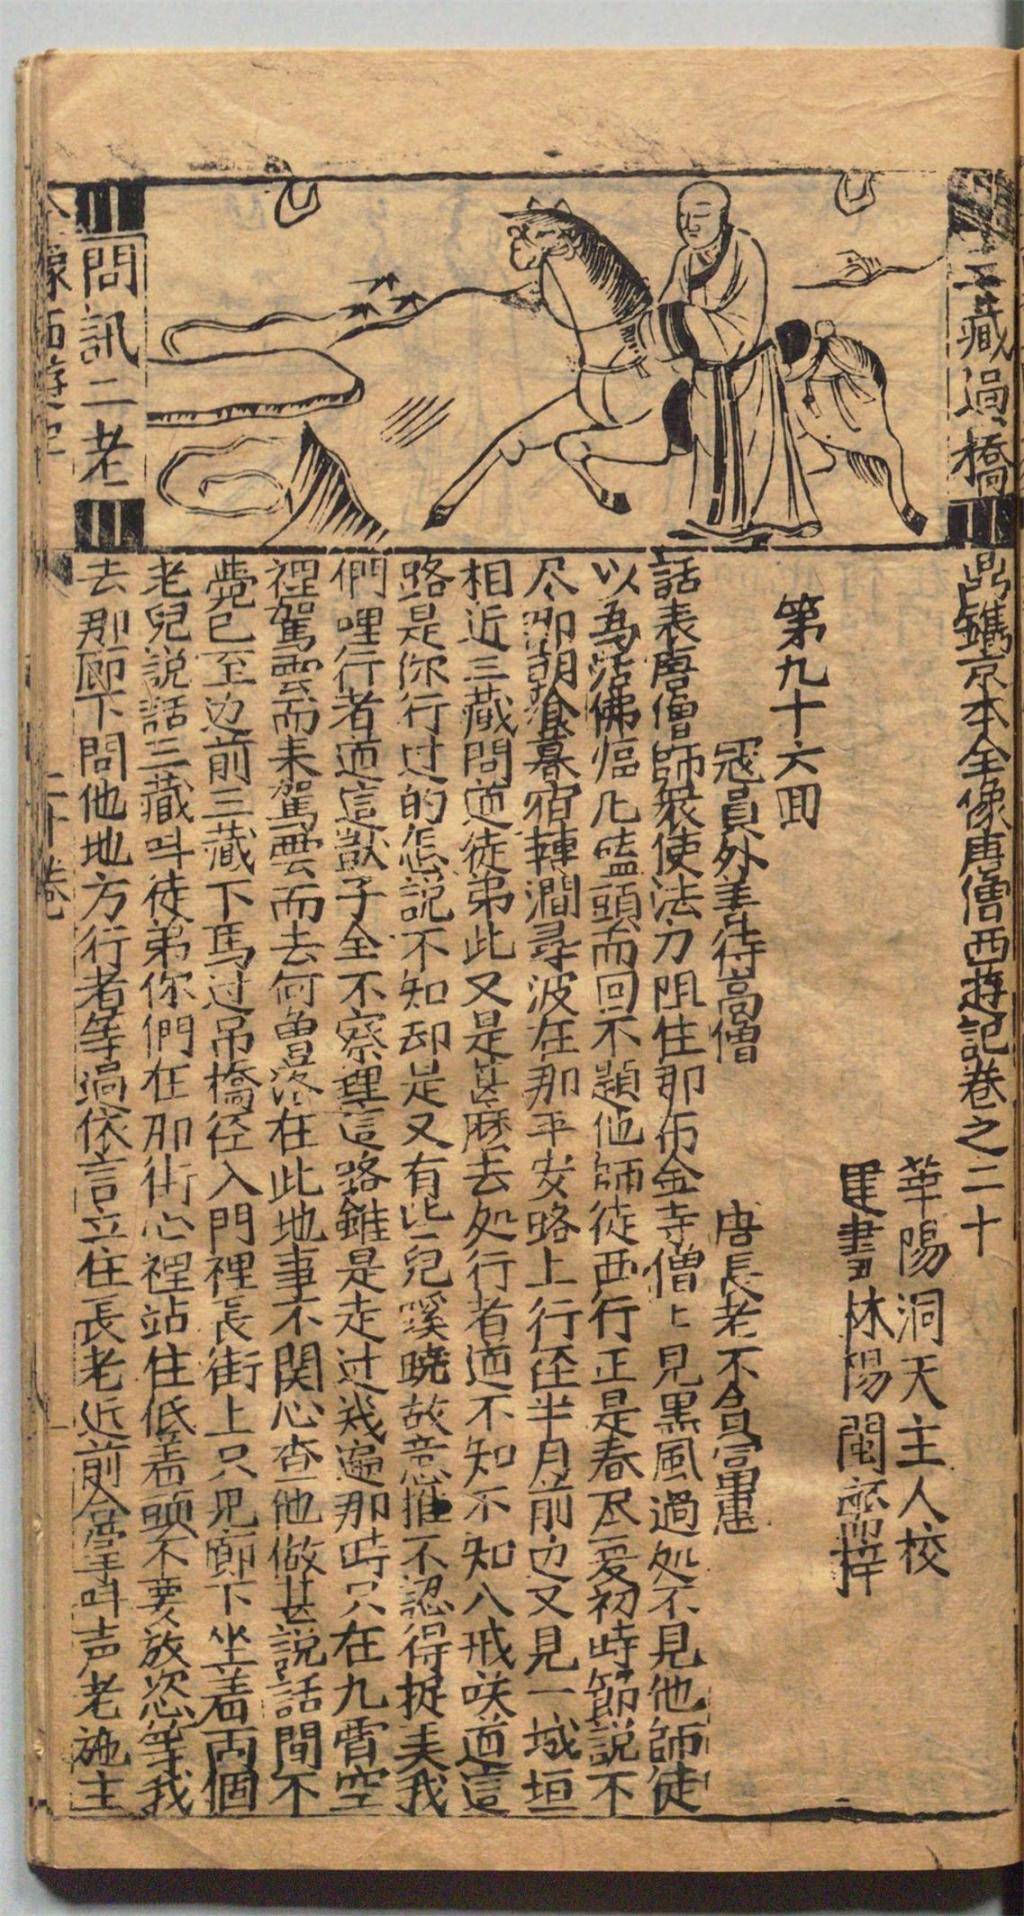 三藏過橋
問訊二老
鼎鐫京本全像唐僧西遊記卷之二十
華陽洞天主人校
書林閩齋梓
第九十六回
寇員外善待高僧
唐長老不貪富惠
話表唐僧師衆使法力阻住那布金寺僧上見黑風過处不見他師徒
以為活佛臨凡磕頭而回不題他師徒西行正是春尽夏初時節說不
尽那朝飡暮宿轉澗尋波在那平安路上行徑半月前边又見一城垣
相近三藏問道徒弟此又是甚麽去処行者道不知不知八戒咲道這
路是你行过的怎說不知却是又有些兒蹊蹺故意推不認得捉美我
們哩行者道這獃子全不察理這路雖是走过幾遍那時只在九霄空
裡駕雲而来駕雲而去何曾落在此地事不関心查他做甚說話間不
覺已至边前三藏下馬过吊橋径入門裡長街上只見廊下坐着両個
老兒說話三藏叫徒弟你們在那街心裡站住低着頭不要放恣等我
去那廊下問他地方行者等過依言立住長老近前合掌叫声老施主
全像西遊記
二十卷